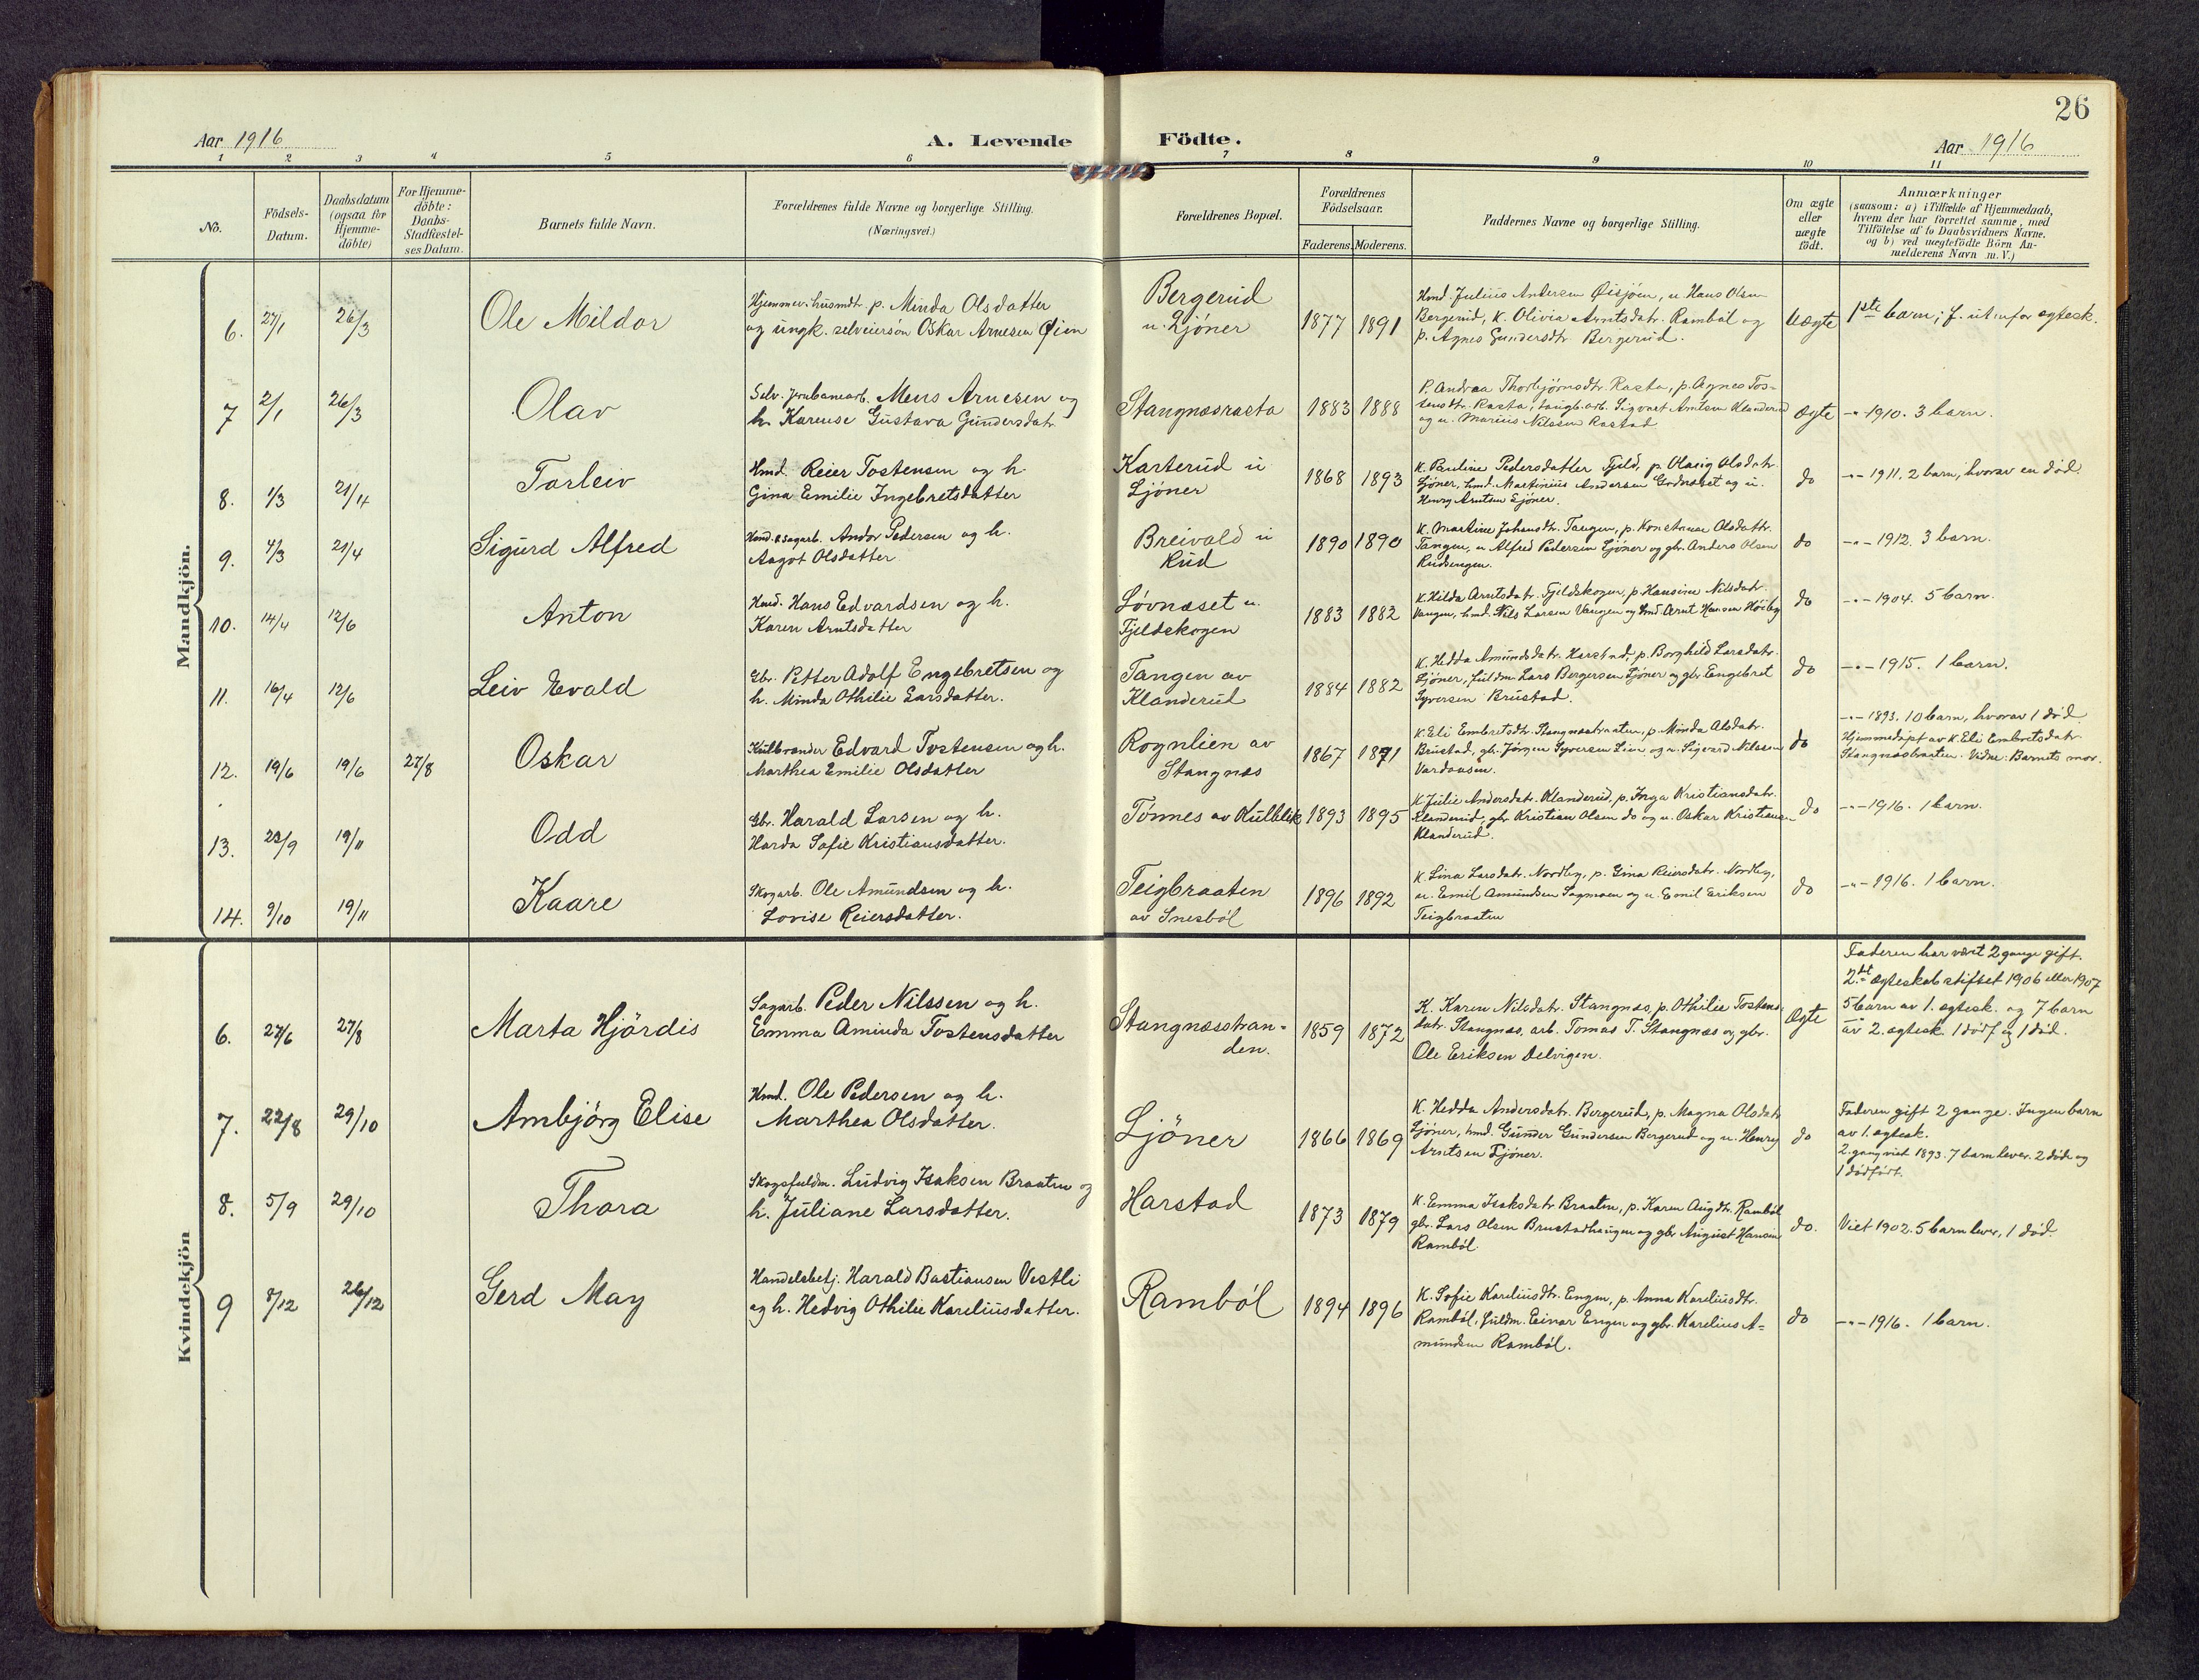 26
Aar 1916
A. Levende
Födte.
Aar 1916
1 2 3 4 5 6 7 8 9 10 11
No.
Födsels-
Datum.
Daabsdatum
(ogsaa for
Hjemme-
döbte)
For Hjemme-
döbte:
Daabs-
Stadfæstel-
ses Datum.
Barnets fulde Navn.
Forældrenes fulde Navne og borgerlige Stilling.
(Næringsvei.)
Forældrenes Bopæl.
Forældrenes
Födselsaar.
Faderens. Moderens.
Faddernes Navne og borgerlige Stilling.
Om ægte
eller
uægte
födt.
Anmærkninger
(saasom: a) i Tilfælde af Hjemmedaab,
hvem der har forrettet samme, med
Tilföielse af to Daabsvidners Navne.
og b) ved uægtefödte Börn An-
melderens Navn m. V.)
Mandkjön.
6. 27/1 26/3
Ole Mildor
Hjemmev. husmdtr. p. Minda Olsdatter
og ungk. selveiersön Oskar Arnesen Øien
Bergerud
u. Ljöner
1877 1891
Hmd. Julius Andersen Øisjöen, u. Hans Olsen
Bergerud, K. Olivia Arntsdatr. Ramböl og
p. Agnes Gundersdtr. Bergerud.
Uægte
1ste barn; f. utenfor egtesk.
7 2/1 26/3
Olav
Selv. Jernbanearb. Mens Arnesen og
h. Karense Gustava Gundersdatr.
Stangnæsrasta
1883 1888
P. Andrea Thorbjörnsdtr. Rasta, p. Agnes Tos-
tensdtr. Rasta, Sagb.arb. Sigvart Arntsen Klanderud
og u. Marius Nilssen Rastad
Ægte
-"- 1910. 3 barn.
8. 1/3 21/4
Torleiv
Hmd. Reier Tostensen og h.
Gina Emilie Ingebretsdatter
Karterud u
Ljöner
1868 1893
K. Pauline Pedersdatter Fjeld, p. Olasig Olsdatr.
Ljöner, hmd. Martinius Andersen Godnæset og u.
Henry Arntsen Ljöner.
do
-"- 1911. 2 barn, hvorav en död.
9. 4/3 21/4
Sigurd Alfred
Hmd. & sagarb. Andor Pedersen og h.
Aagot Olsdatter
Breivold u
Rud
1890 1890
K. Martine Johansdtr. Tangen, p. Konstanse Olsdattr.
Tangen, u. Alfred Pedersen Ljöner og gbr. Anders Olsen
Rudsengen.
do
-"- 1912. 3 barn.
10. 14/4 12/6
Anton
Hmd. Hans Edvardsen og h.
Karen Arntsdatter
Lövnæset u.
Fjeldskogen
1883 1882
K. Hilda Arntsdatr. Fjeldskogen, p. Hansine Nilsdatr.
Vangen, hmd. Nils Larsen Vangen og hmd. Arnt Hansen Höiby
do
-"- 1904. 5 barn.
11. 16/4 12/6
Leiv Evald
Gbr. Petter Adolf Engebretsen og
h. Minda Othilie Larsdatter.
Tangen av
Klanderud
1884 1882
K. Hedda Amundsdatr. Harstad, p. Borghild Larsdatr.
Ljöner, fuldm. Lars Bergersen Ljöner og gbr. Engebret
Syversen Brustad.
do
-"- 1915. 1 barn.
12. 19/6 19/6 27/8
Oskar
Kulbrænder Edvard Tostensen og h.
Marthea Emilie Olsdatter
Rognlien av
Stangnæs
1867 1871
K. Eli Embretsdtr. Stangnæsbraaten, p. Minda Olsdatr.
Brustad, gbr. Jörgen Syversen Lien og u. Sigvard Nilssen
Vardaasen.
do
-"- 1893. 10 barn, hvorav 1 död.
Hjemmedöpt av K. Eli Embretsdatr.
Stangnæsbraaten. Vidne: Barnets mor.
13. 23/9 19/11
Odd
Gbr. Harald Larsen og h.
Harda Sofie Kristiansdatter.
Tönnes av Kulblik
1893 1895
K. Julie Andersdatr. Klanderud, p. Inga Kristiansdatr.
Klanderud, gbr. Kristian Olsen do og u. Oskar Kristiansen
Klanderud.
do
-"- 1916. 1 barn.
14. 9/10 19/11
Kaare
Skogarb. Ole Amundsen og h.
Lovise Reiersdatter.
Teigbraaten
av Snesböl
1896 1892
K. Lina Larsdatr. Nordby, p. Gina Reiersdatr. Nordby,
u. Emil Amundsen Sagmoen og u. Emil Eriksen
Teigbraaten
do
-"- 1916. 1 barn.
Kvindekjön
6. 27/6 27/8
Marta Hjördis
Sagarb. Peder Nilssen og h.
Emma Aminda Tostensdatter
Stangnæsstran-
den.
1859 1872
K. Karen Nilsdatr. Stangnæs, p. Othilie Tostens-
datr. Stangnæs, arb. Tomas T. Stangnæs og gbr.
Ole Eriksen Delvigen.
Ægte
Faderen har vært 2 gange gift.
2det ægteskab stiftet 1906 eller 1907
5 barn av 1. egtesk. og 7 barn
av 2. egtesk. 1 dödf. og 1 död.
7. 22/8 29/10
Ambjörg Elise
Hmd. Ole Pedersen og h.
Marthea Olsdatter.
Ljöner
1866 1869
K. Hedda Andersdatr. Bergerud, p. Magna Olsdatr.
Ljöner, hmd. Gunder Gundersen Bergerud og u. Henry
Arntsen Ljöner.
do
Faderen gift 2 gange. Ingen barn
av 1. egtesk.
2. gang viet 1893. 7 barn lever. 2 döde og
1 dödfödt.
8. 5/9 29/10
Thora
Skogsfuldm. Ludvig Isaksen Braaten og
h. Juliane Larsdatter.
Harstad
1873 1879
K. Emma Isaksdatr. Braaten, p. Karen Augdtr. Ramböl
gbr. Lars Olsen Brustadhaugen og gbr. August Hansen
Ramböl.
do.
Viet 1902. 5 barn lever, 1 död.
9 8/12 26/12
Gerd May
Handelsbetj. Harald Bastiansen Vestli
og h. Hedvig Othilie Kareliusdatter.
Ramböl
1894 1896
K. Sofie Kareliusdtr. Engen, p. Anna Kareliusdtr.
Ramböl, fuldm. Einar Engen og gbr. Karelius A=
mundsen Ramböl.
do
-"- 1916. 1 barn.